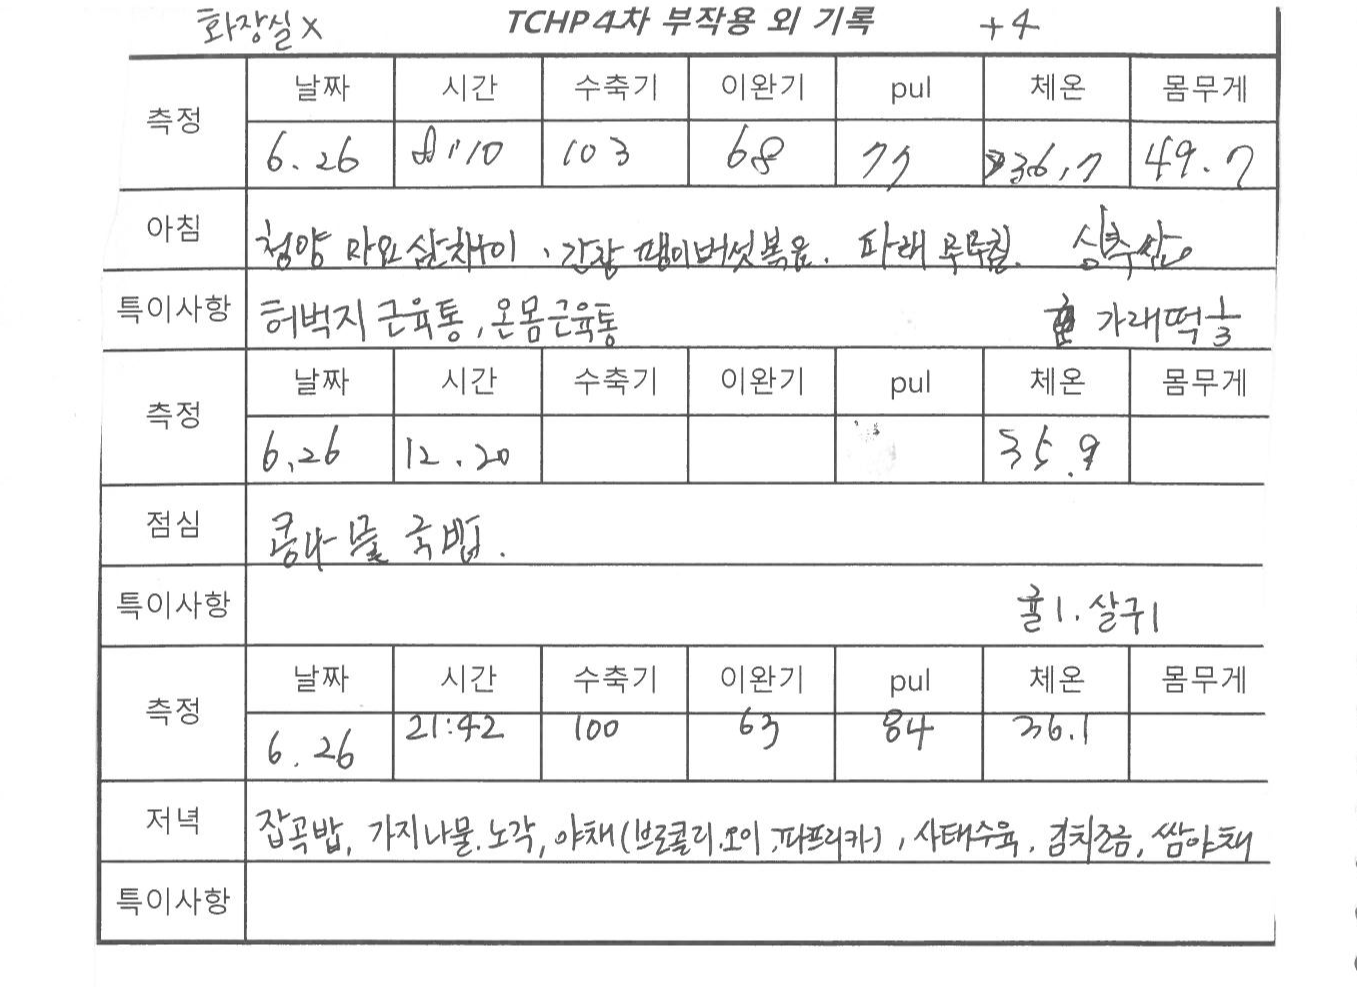 화장실 x TCHP 4차 부작용 외 기록 +4
측정 날짜 시간 수축기 이완기 pul 체온 몸무게
6.26 8:10 103 68 77 36.7 49.7
아침 청양 마요 참치 간장 팽이버섯볶음. 파래 상추쌈
특이사항 허벅지 근육통, 온몸근육통 가래떡 1/3
측정 날짜 시간 수축기 이완기 pul 체온 몸무게
6.26 12.20 35.9
점심 콩나물 국밥.
특이사항 귤1. 살구1
측정 날짜 시간 수축기 이완기 pul 체온 몸무게
6.26 21:42 100 63 84 36.1
저녁 잡곡밥, 가지나물. 노각, 야채(브로콜리.오이.파프리카), 사태수육, 김치조금, 쌈야채
특이사항